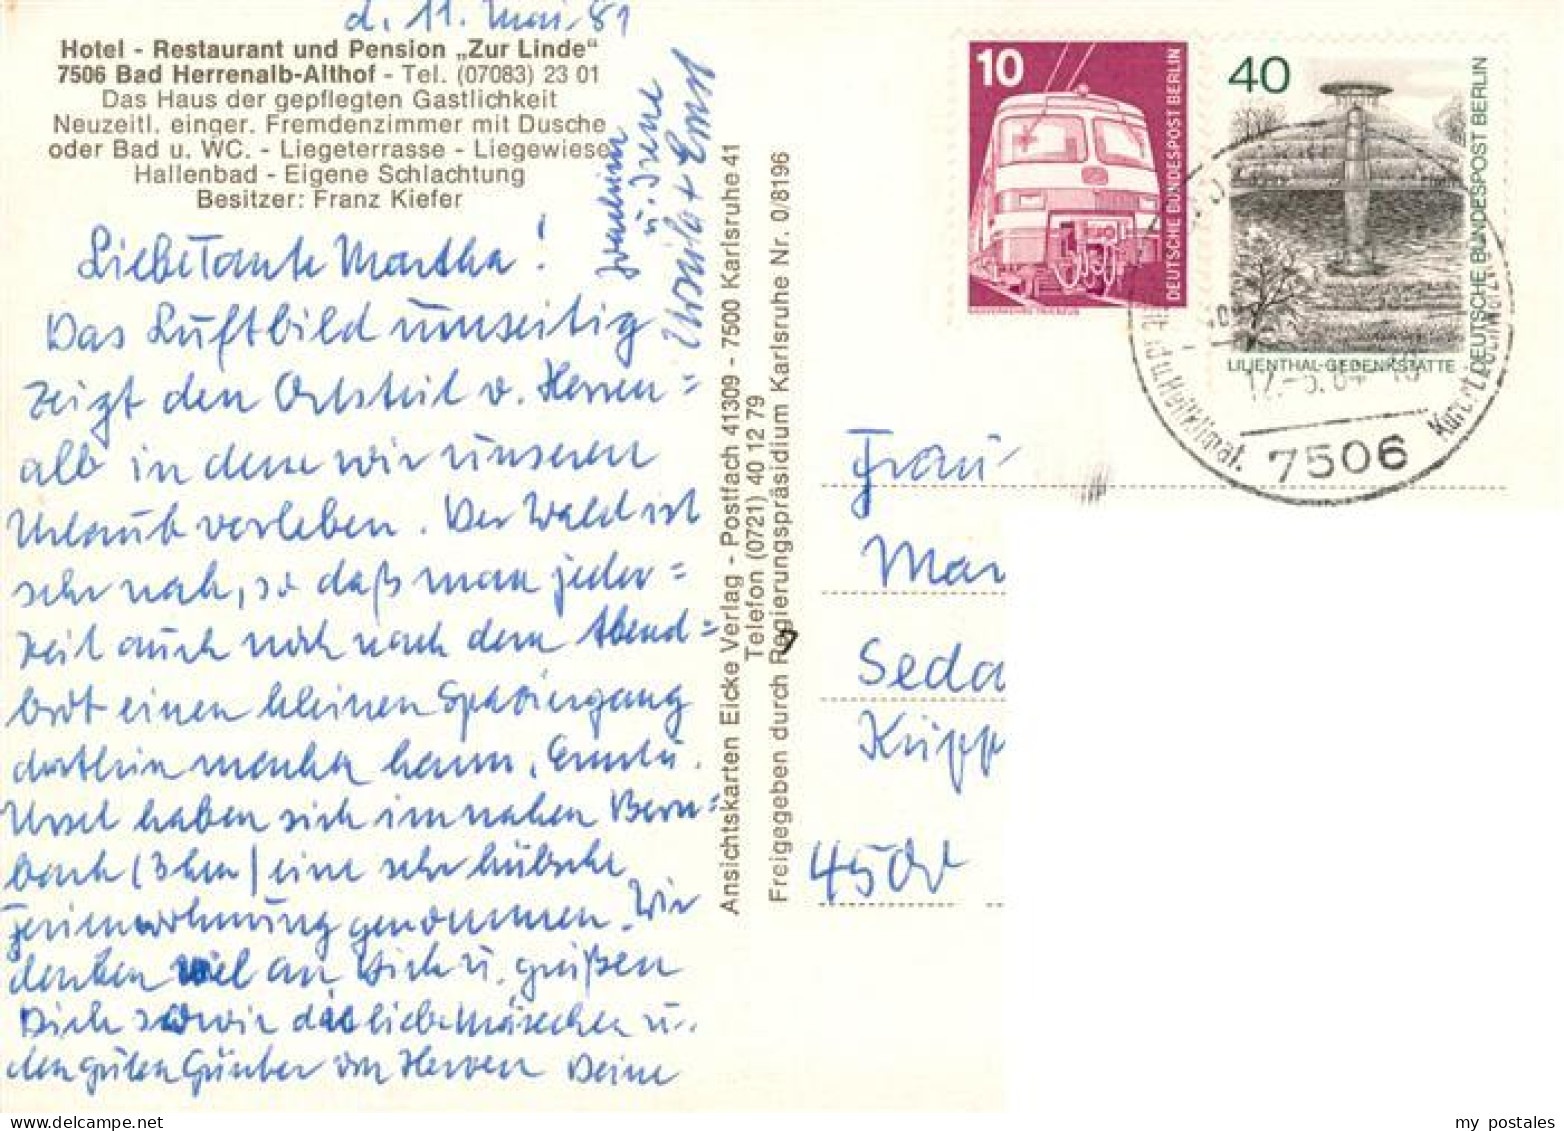 d. 11. Mai 81
Hotel - Restaurant und Pension „Zur Linde"
7506 Bad Herrenalb-Althof - Tel. (07083) 23 01
Das Haus der gepflegten Gastlichkeit
Neuzeitl. einger. Fremdenzimmer mit Dusche
oder Bad u. WC. - Liegeterrasse - Liegewiese
Hallenbad - Eigene Schlachtung
Besitzer: Franz Kiefer
Liebe Tante Martha!
Das Luftbild umseitig
zeigt den Ortsteil v. Herren=
alb in dem wir unseren
Urlaub verleben. Der Wald ist
sehr nah, so daß man jeder=
zeit auch noch nach dem Abend=
brot einen kleinen Spaziergang
dorthin machen kann. Ernst u.
Ursel haben sich im nahen Bern=
bach (3 km) eine sehr hübsche
Ferienwohnung genommen. Wir
denken viel an Dich u. grüßen
Dich sowie das liebe u.
den guten Günter von Herzen Deine
Joachim
u. Irene
Ursula + Ernst
Ansichtskarten Eicke Verlag - Postfach 41309 - 7500 Karlsruhe 41
Telefon (0721) 40 12 79
Freigegeben durch Regierungspräsidium Karlsruhe Nr. 0/8196
10
DEUTSCHE BUNDESPOST BERLIN
40
DEUTSCHE BUNDESPOST BERLIN
LILIENTHAL-GEDENKSTÄTTE
u. Heilklimat. Kurort
7506
Frau
Mar
Seda
Krüpp
4500
my postales